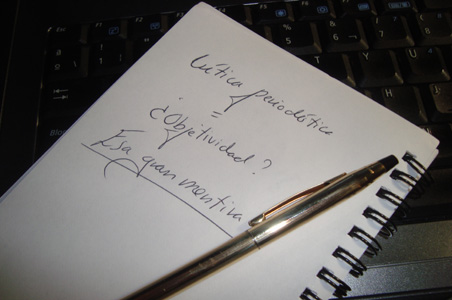 Crítica periodística
=
¿Objetividad?
Esa gran mentira